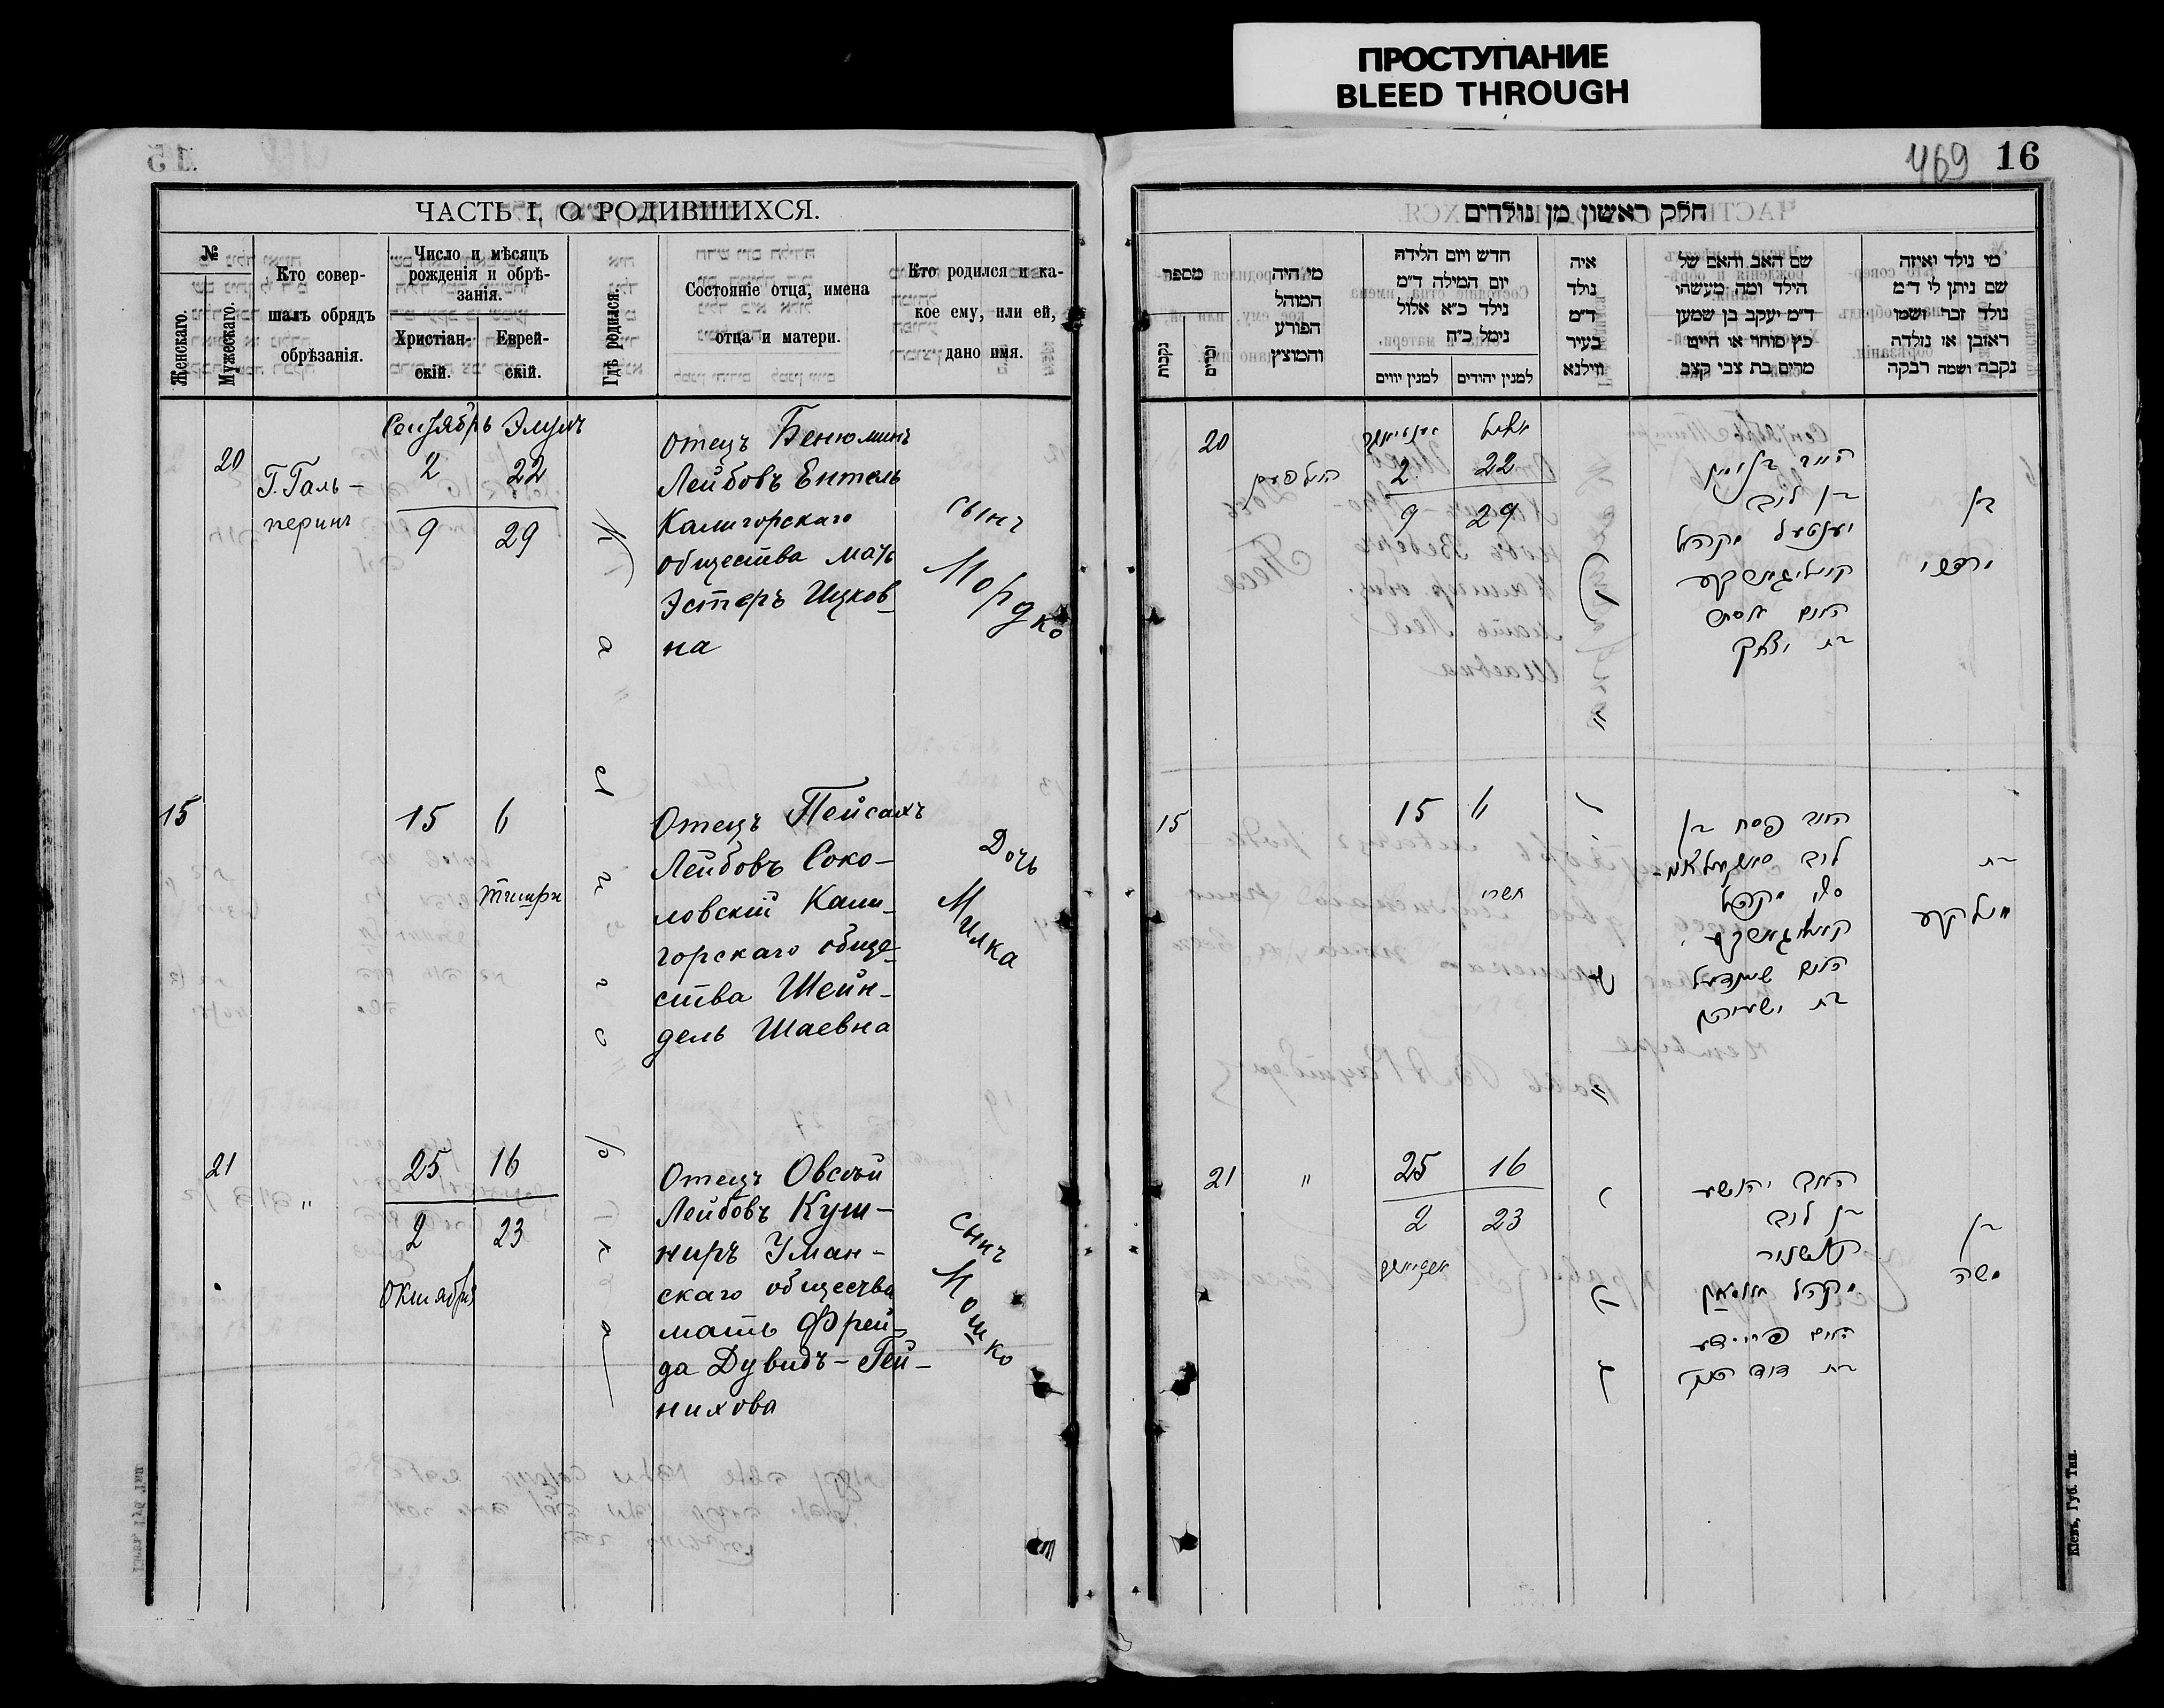 ПРОСТУПАНИЕ
BLEED THROUGH
ЧАСТЬ I, О РОДИВШИХСЯ.
№
Женскаго.
Мужескаго.
Кто совер-
шалъ обрядъ
обрѣзанія.
Число и мѣсяцъ
рожденія и обрѣ-
занія.
Христіан-
скій.
Еврей-
скій.
Гдѣ родился.
Состояніе отца, имена
отца и матери.
Кто родился и ка-
кое ему, или ей,
дано имя.
20
Г. Галь-
перинъ
Сентябрь Элулъ
2 22
9 29
Отецъ Бенюминъ
Лейбовъ Ентель
Калигорскаго
общества мать
Эстеръ Ицков-
на
сынъ
Мордко
15
15 6
тишри
Отецъ Пейсахъ
Лейбовъ Соко-
ловскій Кали-
горскаго обще-
ства Шейн-
дель Шаевна
Дочь
Милка
21
"
25 16
2 23
октября
Отецъ Овсѣй
Лейбовъ Куш-
ниръ Уман-
скаго общества
мать Фрей-
да Дувидъ-Гей-
нихова
сынъ
Мошко
469 16
חלק ראשון מן נולדים
מספר
נקבות
זכרים
מי היה
המוהל
הפורע
והמוצץ
חדש ויום הלידה
יום המילה ד״מ
נילד כ״א אלול
נימל כ״ח
למנין יווים
למנין יהודים
איה
נולד
ד״מ
בעיר
ווילנא
שם האב והאם של
הילד ומה מעשהו
ד״מ יעקב בן שמען
כץ סוחר או חייט
מרים בת צבי קצב
מי נולד ואיזה
שם ניתן לו ד״מ
נולד זכר ושמו
ראובן או נולדה
נקבה ושמה רבקה
20
2 22
9 29
אלול
האב בנימין
בן ליב
יענטעל מקהל
האם אסתר
בת יצחק
בן
מרדכי
15
15 6
תשרי
האב פסח בן
ליב
האם שיינדעל
בת ישעיהו
בת
מילקע
21
"
25 16
2 23
האב יהושע
בן ליב
קושניר
מקהל אומאן
האם פריידע
בת דוד
בן
משה
Кіевъ, Губ. Тип.